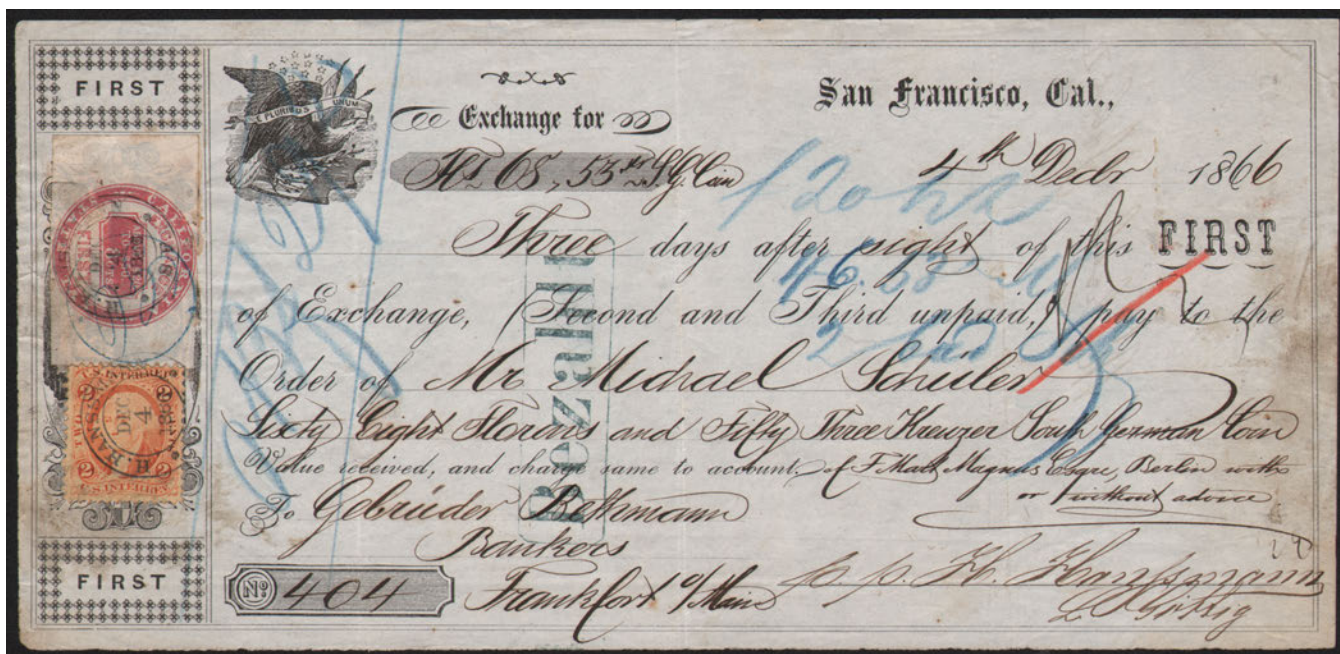 FIRST
E PLURIBUS UNUM
Exchange for
San Francisco, Cal.,
Fls 68,53 Kr S.G. Coin
4th Decbr 1866
Three days after sight of this FIRST
of Exchange, (Second and Third unpaid,) pay to the
Order of Mr Michael Schüler
Sixty Eight Florins and Fifty Three Kreuzer South German Coin
Value received, and charge same to account of F. Mart. Magnus Esqre, Berlin with
or without advice
To Gebrüder Bethmann
Bankers
No 404
Frankfort o/Main
p. p. H. Hanssmann
FIRST
Bezahlt
U.S. INTER. REV.
2
DEC
4